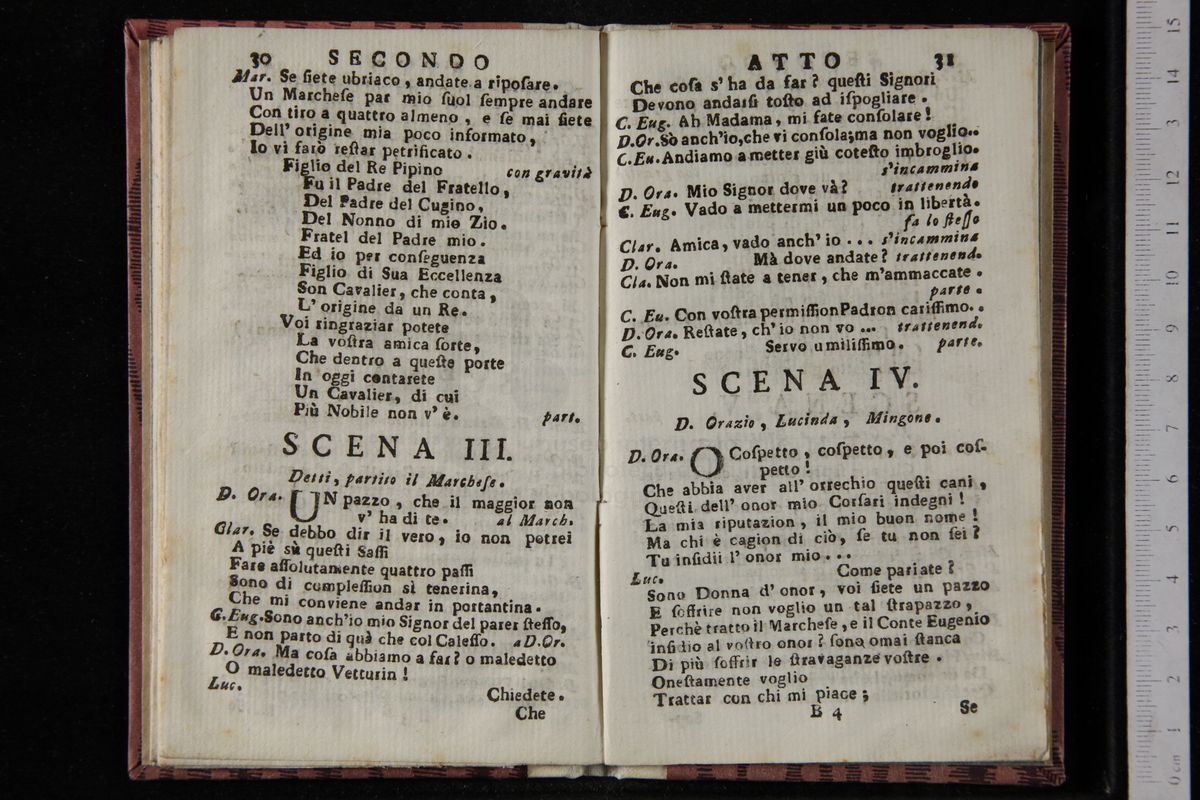 30 SECONDO
Mar. Se ſiete ubriaco, andate a ripoſare.
Un Marcheſe par mio ſuol ſempre andare
Con tiro a quattro almeno, e ſe mai ſiete
Dell' origine mia poco informato,
Io vi farò reſtar petrificato.
Figlio del Re Pipino con gravità
Fu il Padre del Fratello,
Del Padre del Cugino,
Del Nonno di mio Zio.
Fratel del Padre mio.
Ed io per conſeguenza
Figlio di Sua Eccellenza
Son Cavalier, che conta,
L' origine da un Re.
Voi ringraziar potete
La voſtra amica ſorte,
Che dentro a queſte porte
In oggi contarete
Un Cavalier, di cui
Più Nobile non v' è. part.
SCENA III.
Detti, partito il Marcheſe.
D. Ora. UN pazzo, che il maggior non
v' ha di te. al March.
Clar. Se debbo dir il vero, io non potrei
A piè sù queſti Saſſi
Fare aſſolutamente quattro paſſi
Sono di compleſſion sì tenerina,
Che mi conviene andar in portantina.
C. Eug. Sono anch'io mio Signor del parer ſteſſo,
E non parto di quà che col Caleſſo. a D. Or.
D. Ora. Ma coſa abbiamo a far? o maledetto
O maledetto Vetturin!
Luc. Chiedete.
Che
ATTO 31
Che coſa s' ha da far? queſti Signori
Devono andarſi toſto ad iſpogliare.
C. Eug. Ah Madama, mi fate conſolare!
D. Or. Sò anch'io, che vi conſola; ma non voglio..
C. Eu. Andiamo a metter giù coteſto imbroglio.
s'incammina
D. Ora. Mio Signor dove và? trattenendo
C. Eug. Vado a mettermi un poco in libertà.
fa lo ſteſſo
Clar. Amica, vado anch' io ... s'incammina
D. Ora. Mà dove andate? trattenend.
Cla. Non mi ſtate a tener, che m'ammaccate.
parte.
C. Eu. Con voſtra permiſſion Padron cariſſimo..
D. Ora. Reſtate, ch' io non vo ... trattenend.
C. Eug. Servo umiliſſimo. parte.
SCENA IV.
D. Orazio, Lucinda, Mingone.
D. Ora. O Coſpetto, coſpetto, e poi coſ-
petto!
Che abbia aver all' orrechio queſti cani,
Queſti dell' onor mio Corſari indegni!
La mia riputazion, il mio buon nome!
Ma chi è cagion di ciò, ſe tu non ſei?
Tu inſidii l' onor mio...
Luc. Come pariate?
Sono Donna d' onor, voi ſiete un pazzo
E ſoffrire non voglio un tal ſtrapazzo,
Perchè tratto il Marcheſe, e il Conte Eugenio
inſidio al voſtro onor? ſono omai ſtanca
Di più ſoffrir le ſtravaganze voſtre.
Oneſtamente voglio
Trattar con chi mi piace;
B 4 Se
0 cm 1 2 3 4 5 6 7 8 9 10 11 12 13 14 15